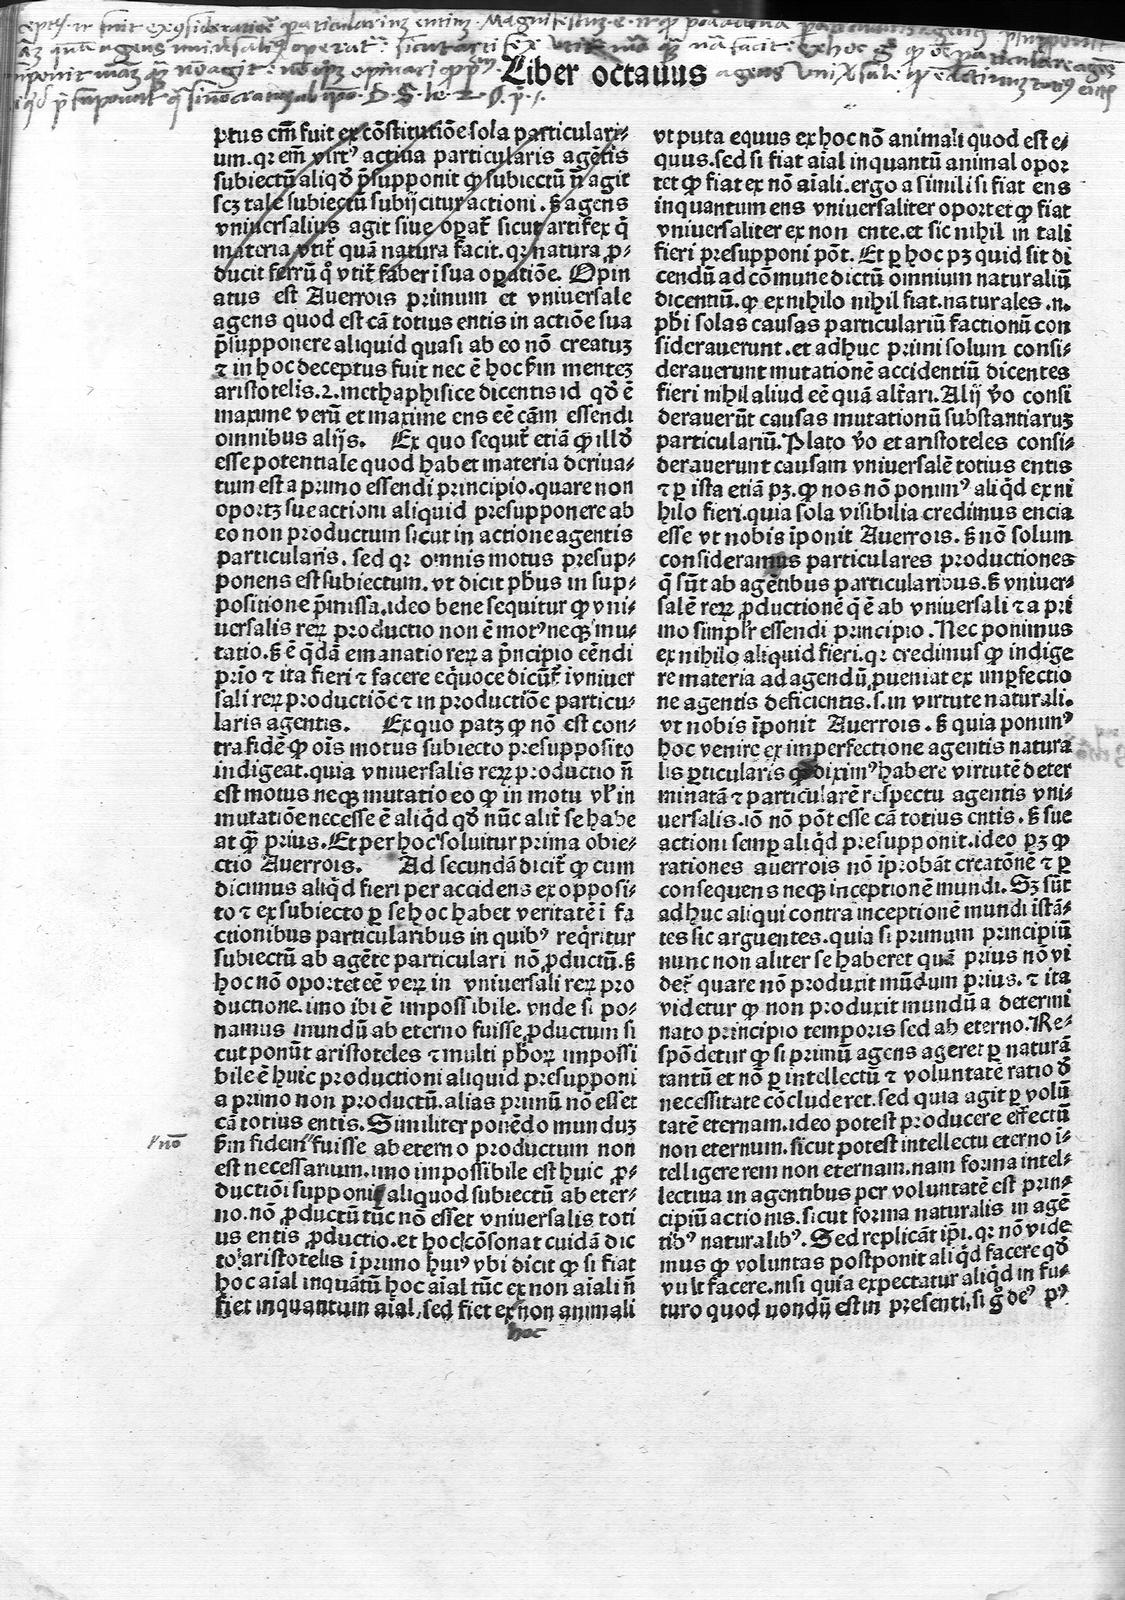 Liber octauus
ptus cm̄ fuit ex cōstitutiōe sola particulari⸗
um. qꝛ em̄ virtꝰ actiua particularis agētis
subiectū aliqđ p̄supponit ꝙ subiectū n̄ agit
scꝫ tale subiectū subijcitur actioni. ẜ agens
vniuersalius agit siue opat̄ sicut artifex q̄
materia vtit̄ quā natura facit. qꝛ natura ꝓ⸗
ducit ferrū q̊ vtit̄ faber i sua opatiōe. Opin
atus est Auerrois primum et vniuersale
agens quod est cā totius entis in actiōe sua
p̄supponere aliquid quasi ab eo nō creatuꝫ
⁊ in hoc deceptus fuit nec ē hoc ẜm menteꝫ
aristotelis. 2. methaphisice dicentis id qđ ē
maxime verū et maxime ens eē cām essendi
omnibus alijs. Ex quo sequit̄ etiā ꝙ illđ
esse potentiale quod habet materia deriua⸗
tum est a primo essendi principio. quare non
oportꝫ sue actioni aliquid presupponere ab
eo non productum sicut in actione agentis
particularis. sed qꝛ omnis motus presup⸗
ponens est subiectum. vt dicit pħus in sup⸗
positione p̄missa. ideo bene sequitur ꝙ vni⸗
uersalis reꝝ productio non ē motꝰ neqꝫ mu⸗
tatio. ẜ ē q̄dā emanatio reꝝ a p̄ncipio eēndi
prīo ⁊ ita fieri ⁊ facere eq̊uoce dicūt̄ i vniuer
sali reꝝ productiōe ⁊ in productiōe particu⸗
laris agentis. Ex quo patꝫ ꝙ nō est con⸗
tra fidē ꝙ oīs motus subiecto presupposito
indigeat. quia vniuersalis reꝝ productio n̄
est motus neqꝫ mutatio eo ꝙ in motu vl̓ in
mutatiōe necesse ē aliqđ qđ nūc alit̄ se habe
at qꝫ prius. Et per hoc soluitur prima obie⸗
ctio Auerrois. Ad secundā dicit̄ ꝙ cum
dicimus aliqđ fieri per accidens ex opposi⸗
to ⁊ ex subiecto ꝑ se hoc habet veritatē ī fa
ctionibus particularibus in quibꝰ reqͥritur
subiectū ab agēte particulari nō ꝓductū. ẜ
hoc nō oportet eē veꝝ in vniuersali reꝝ pro
ductione. imo ibi ē impossibile. vnde si po⸗
namus mundū ab eterno fuisse ꝓductum si
cut ponūt aristoteles ⁊ multi pħoꝝ impossi
bile ē huic productioni aliquid presupponi
a primo non productū. alias primū nō esset
cā totius entis. Similiter ponēdo munduꝫ
v̓ nō
ẜm fidem fuisse ab eterno productum non
est necessarium. imo impossibile est huic ꝓ⸗
ductiōi supponi aliquod subiectū ab eter⸗
no. nō ꝓductū tūc nō esset vniuersalis toti
us entis ꝓductio. et hoc cōsonat cuidā dic
to aristotelis ī primo huiꝰ vbi dicit ꝙ si fiat
hoc aīal inquātū hoc aīal tūc ex non aīali n̄
fiet inquantum aīal. sed fiet ex non animali
hoc
vt puta equus ex hoc nō animali quod est e⸗
quus. sed si fiat aīal inquantū animal opor
tet ꝙ fiat ex nō aīali. ergo a simili si fiat ens
inquantum ens vniuersaliter oportet ꝙ fiat
vniuersaliter ex non ente. et sic nihil in tali
fieri presupponi pōt. Et ꝑ hoc pꝫ quid sit di
cendū ad cōmune dictū omnium naturaliū
dicentiū. ꝙ ex nihilo nihil fiat. naturales .n.
pħi solas causas particulariū factionū con
siderauerunt. et adhuc primi solum consi⸗
derauerunt mutationē accidentiū dicentes
fieri nihil aliud eē quā alt̄ari. Alij v̓o consi
derauerūt causas mutationū substantiaruꝫ
particulariū. Plato v̓o et aristoteles consi⸗
derauerunt causam vniuersalē totius entis
⁊ ꝑ ista etiā pꝫ. ꝙ nos nō ponimꝰ aliqđ ex ni
hilo fieri. quia sola visibilia credimus encia
esse vt nobis īponit Auerrois. ẜ nō solum
consideramus particulares productiones
q̄ sūt ab agētibus particularibus. ẜ vniuer⸗
salē reꝝ ꝓductionē q̄ ē ab vniuersali ⁊ a pri
mo simplr̄ essendi principio. Nec ponimus
ex nihilo aliquid fieri. qꝛ credimus ꝙ indige
re materia ad agendū ꝓueniat ex imperfectio
ne agentis deficientis. s. in virtute naturali.
vt nobis īponit Auerrois. ẜ quia ponimꝰ
hoc venire ex imperfectione agentis natura
lis ꝑticularis ꝙ diximꝰ habere virtutē deter
minatā ⁊ particularē respectu agentis vni⸗
uersalis. iō nō pōt esse cā totius entis. ẜ sue
actioni semꝑ aliqđ presupponit. ideo pꝫ ꝙ
rationes auerrois nō īprobāt creatōnē ⁊ ꝑ
consequens neqꝫ inceptionē mundi. Sꝫ sūt
adhuc aliqui contra inceptionē mundi īstā⸗
tes sic arguentes. quia si primum principiū
nunc non aliter se haberet quā prius nō vi
det̄ quare nō produxit mūdum prius. ⁊ ita
videtur ꝙ non produxit mundū a determi
nato principio temporis sed ab eterno. Re⸗
spōdetur ꝙ si primū agens ageret ꝑ naturā
tantū et nō ꝑ intellectū ⁊ voluntatē ratio đ
necessitate cōcluderet. sed quia agit ꝑ volū
tatē eternam. ideo potest producere effectū
non eternum. sicut potest intellectu eterno i⸗
telligere rem non eternam. nam forma intel⸗
lectiua in agentibus per voluntatē est prin⸗
cipiū actionis. sicut forma naturalis in agē
tibꝰ naturalibꝰ. Sed replicāt ip̄i. qꝛ nō vide
mus ꝙ voluntas postponit aliqđ facere qđ
vult facere. nisi quia expectatur aliqđ in fu⸗
turo quod nondū est in presenti. si g̊ deꝰ pꝰ